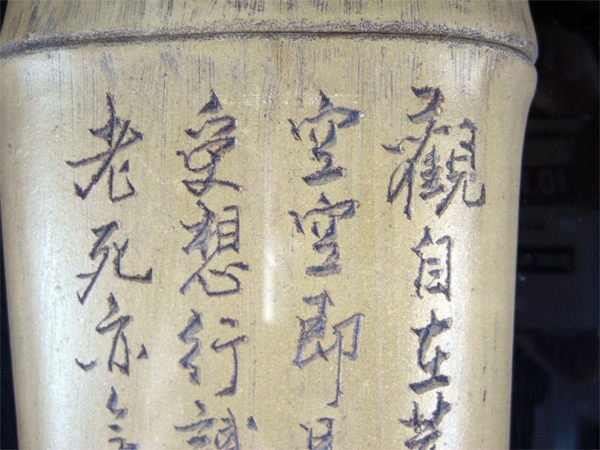 觀自在菩
空空即
受想行識
老死亦